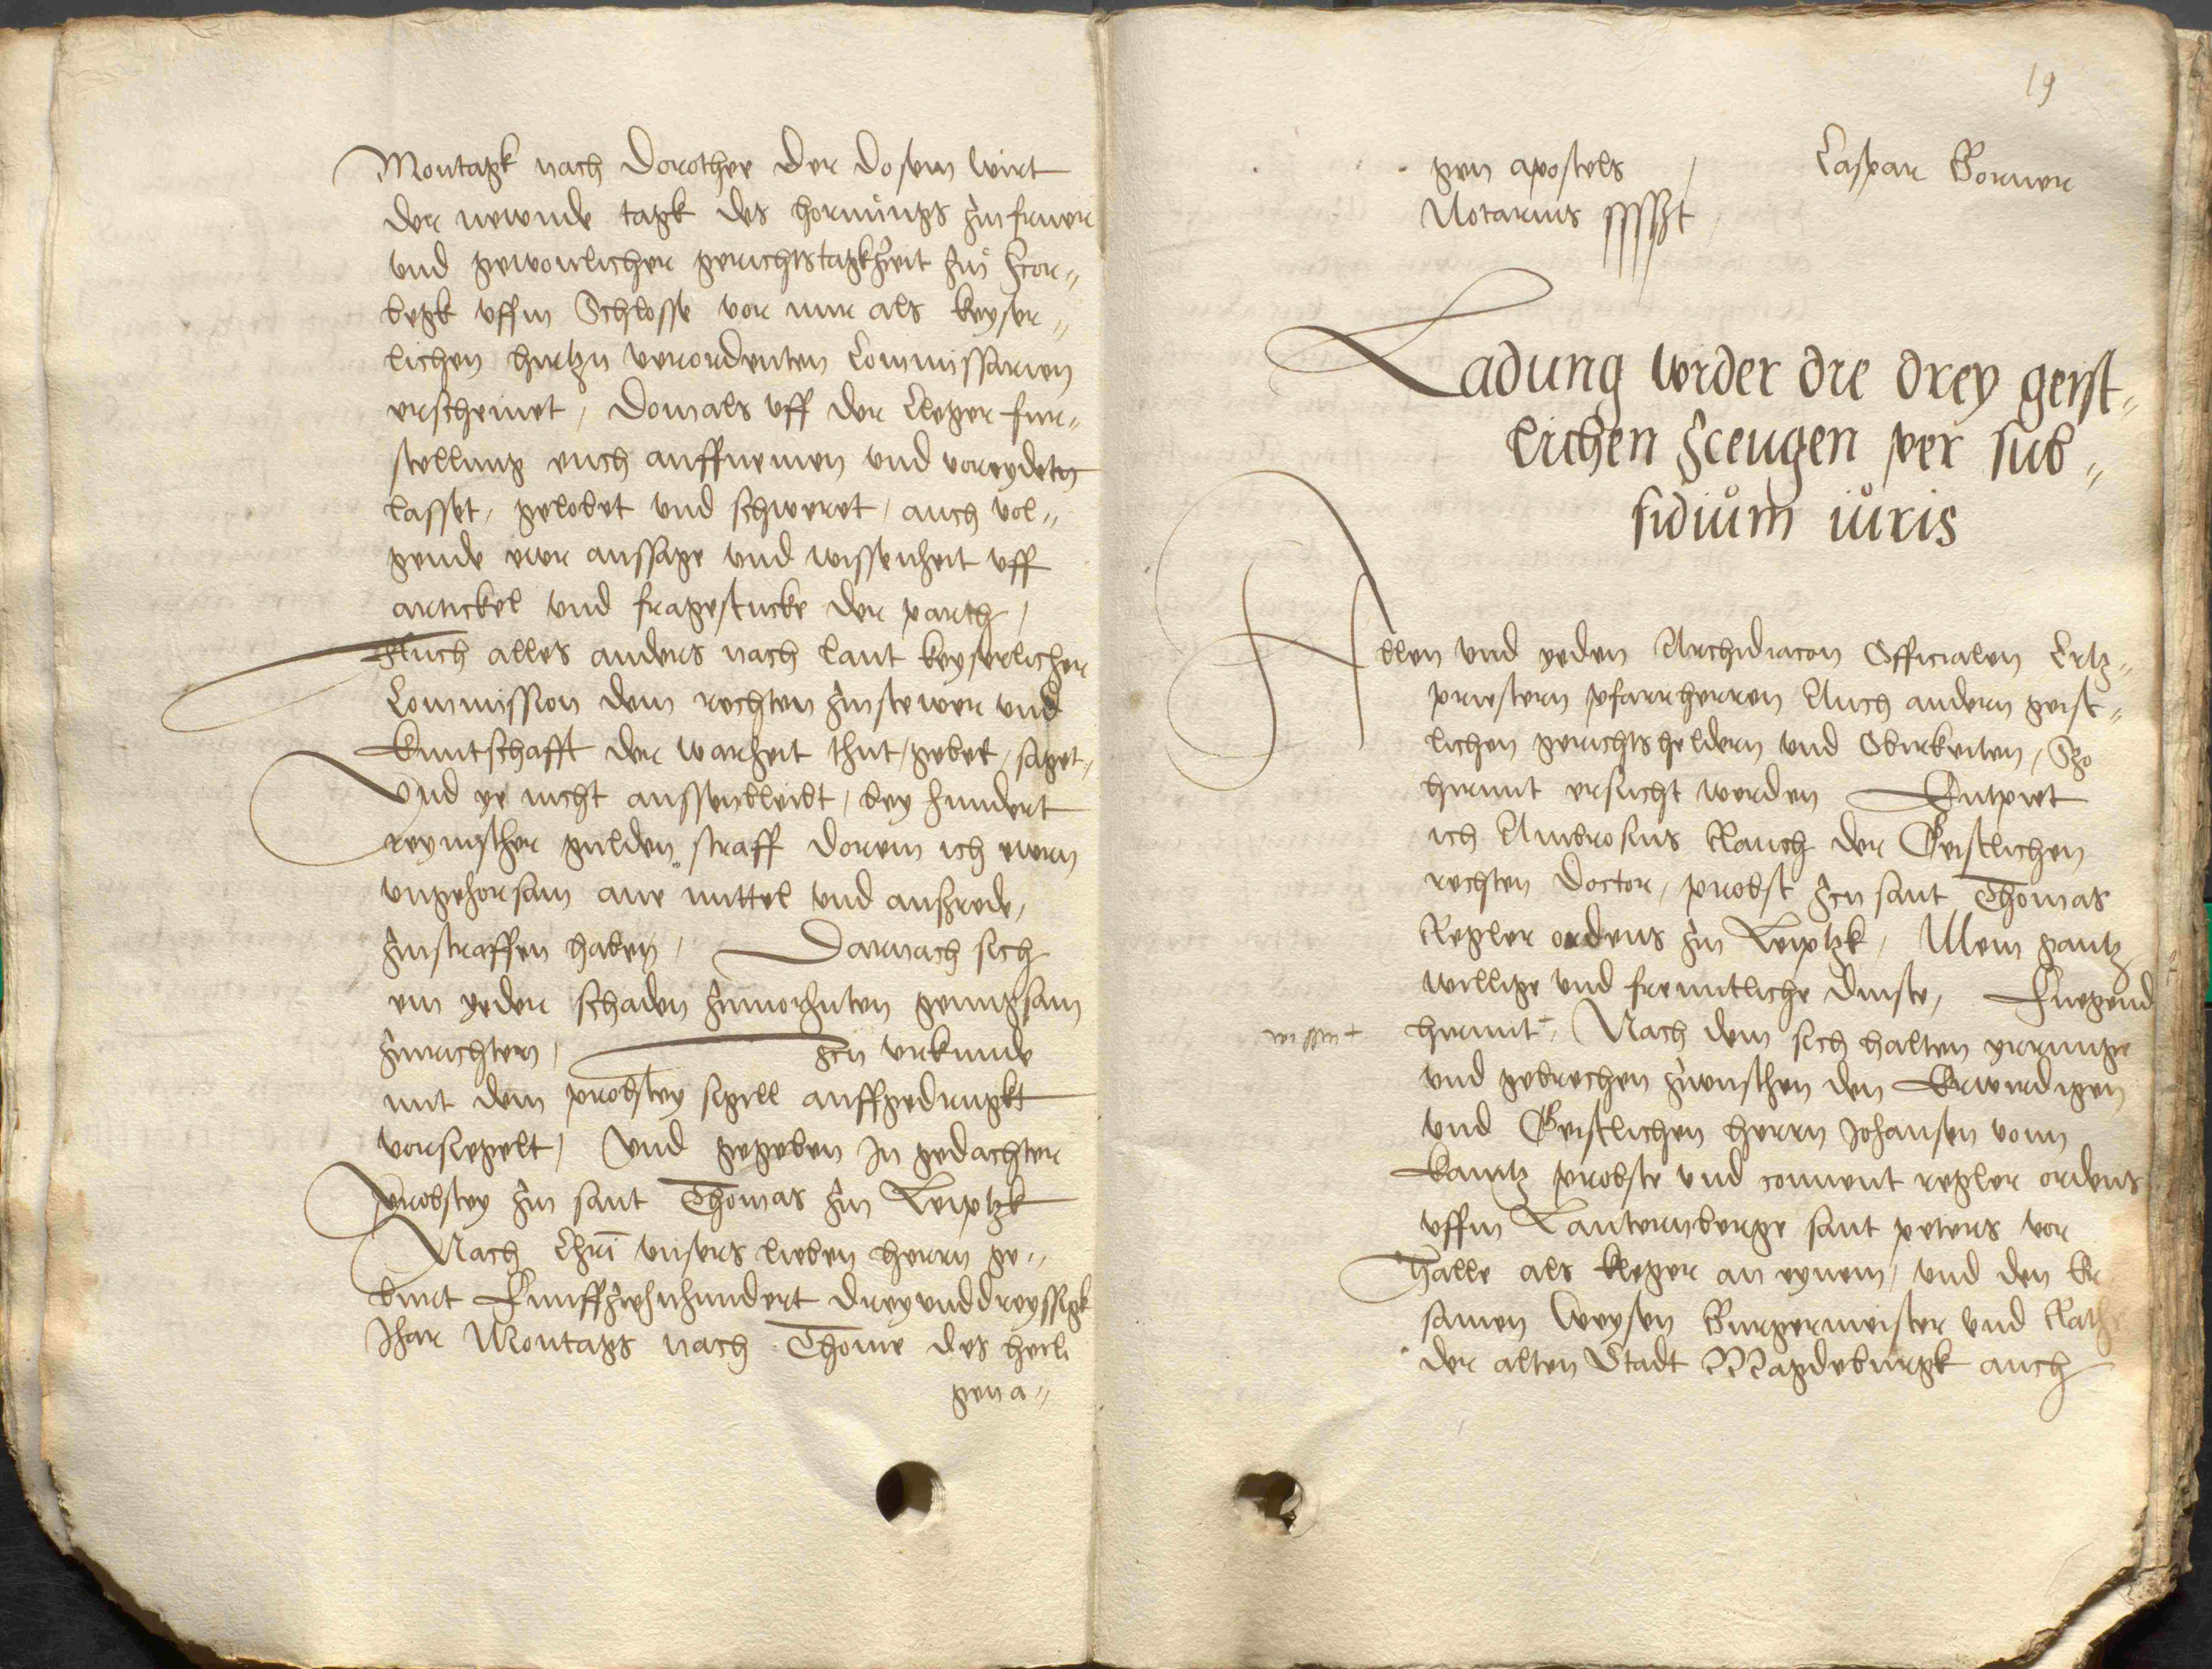 Montagk nach Dorothee der do sein wirt
der newnde tagk des hornungs zu fruer
und gewonlicher gerichtstagkzeit zu Zcor¬
begk uffm Schlosse vor mir als keyser¬
lichen hirtzu verordenten Commissarien
erscheinet, Domals uff der Cleger fur¬
stellung euch auffnemen und voreydetn
lasset, gelobet und schweret, auch vol¬
gende ewr aussage und wissenheit uff
artickel und fragestucke der parth,
Auch alles anders nach laut keyserlicher
Commission dem rechten zustewer und
kuntschafft der warheit thut, gebet, saget,
Und ye nicht aussenbleibt, bey hundert
reynischer gulden straff dorein ich ewrn
ungehorsam ane mittel und aussrede,
zustraffen haben, Darnach sich
ein yeder schaden zuuorhuten genugsam
zurichten, Zcu urkunde
mit dem probstey sigill auffgedrugkt
vorsiegelt, Und gegeben in gedachter
probstey zu sant Thomas zu Leiptzk
Nach Chri unsers lieben herrn ge¬
burt Funffzehnhundert dreyunddreyssigk
Jhar Montags nach Thome des heili
gen a¬
19
gen apostels, Caspar Borner
Notarius ssst
Ladung wider die drey geist¬
lichen zceugen per sub¬
sidium iuris
Allen und yeden Archidiacon Officialen Ertz¬
priestern pfarrherren Auch andern geist¬
lichen gerichtsheldern und Obirkeiten, Szo
hirmit ersucht werden Entpiet
ich Ambrosius Rauch der Geistlichen
rechten Doctor, probst zcu sant Thomas
Regler ordens zu Leiptzk, Mein gantz
willige und freuntliche dinste, Fuegend
hirmit + Nach dem sich halten yrrunge
und gebrechen zwuschen den Erwirdigen
und Geistlichen herrn Johansen vonn
Kanitz probste und conuent regler ordens
uffm Lauternberge sant peters vor
Halle als kleger an eynem, und den Er
samen Weysen Burgermeister und Rathe
der alten Stadt Magdeburgk auch